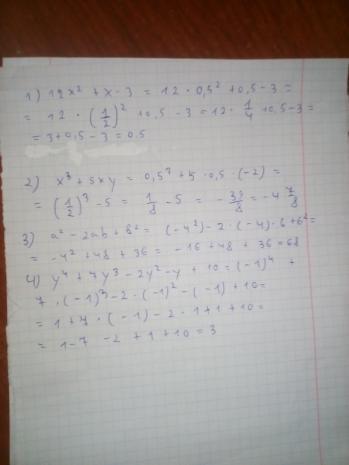 1) 12x² + x - 3 = 12 · 0,5² + 0,5 - 3 =
= 12 · (1/2)² + 0,5 - 3 = 12 · 1/4 + 0,5 - 3 =
= 3 + 0,5 - 3 = 0,5
2) x³ + 5xy = 0,5³ + 5 · 0,5 · (-2) =
= (1/2)³ - 5 = 1/8 - 5 = - 39/8 = -4 7/8
3) a² - 2ab + b² = (-4²) - 2 · (-4) · 6 + 6² =
= -4² + 48 + 36 = -16 + 48 + 36 = 68
4) y⁴ + 7y³ - 2y² - y + 10 = (-1)⁴ +
7 · (-1)³ - 2 · (-1)² - (-1) + 10 =
= 1 + 7 · (-1) - 2 · 1 + 1 + 10 =
= 1 - 7 - 2 + 1 + 10 = 3